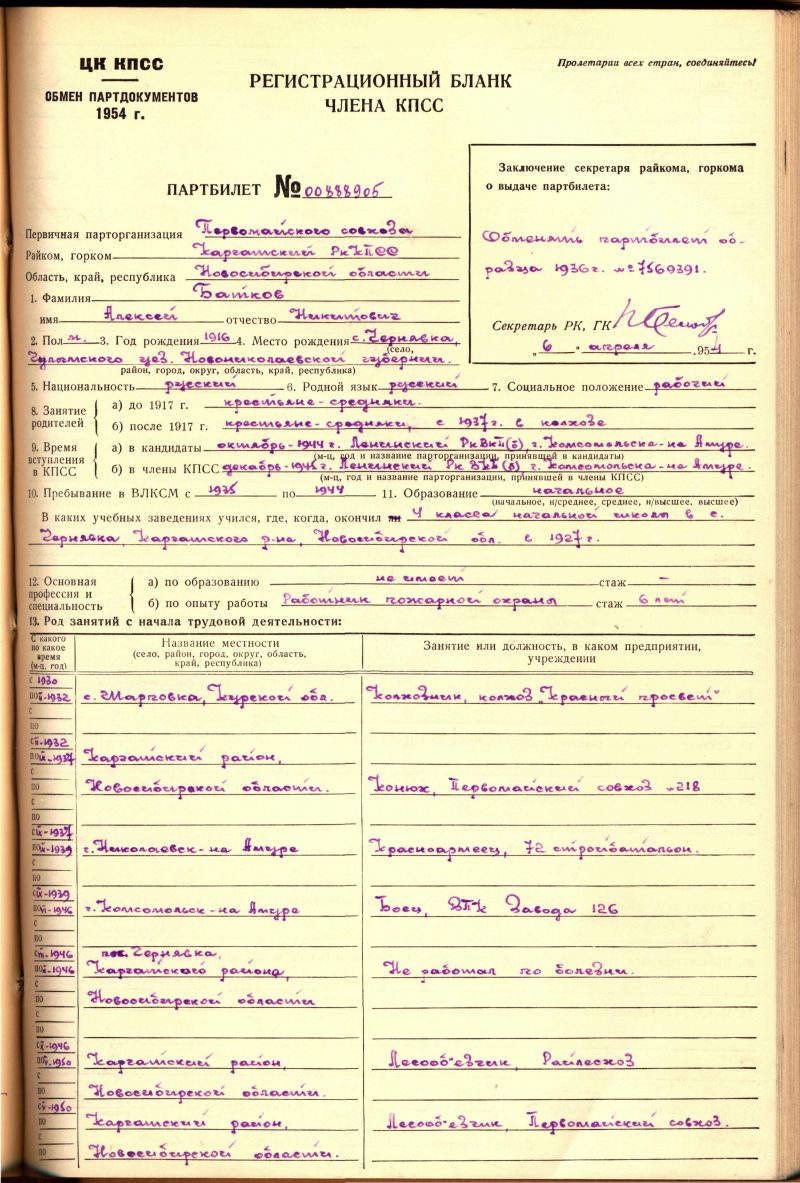 ЦК КПСС
ОБМЕН ПАРТДОКУМЕНТОВ
1954 г.
Пролетарии всех стран, соединяйтесь!
РЕГИСТРАЦИОННЫЙ БЛАНК
ЧЛЕНА КПСС
ПАРТБИЛЕТ № 00888905
Заключение секретаря райкома, горкома
о выдаче партбилета:
Обменять партбилет об-
разца 1936 г. №7569391.
Секретарь РК, ГК
„6" апреля 1954 г.
Первичная парторганизация Первомайского совхоза
Райком, горком Каргатский РК КПСС
Область, край, республика Новосибирской области
1. Фамилия Батков
имя Алексей отчество Никитович
2. Пол м. 3. Год рождения 1916 4. Место рождения с. Чернявка,
(село,
Чулымского уез. Новониколаевской губернии.
район, город, округ, область, край, республика)
5. Национальность русский 6. Родной язык русский 7. Социальное положение рабочий
8. Занятие родителей
а) до 1917 г. крестьяне-средняки.
б) после 1917 г. крестьяне-средняки, с 1937г. в колхозе
9. Время вступления в КПСС
а) в кандидаты октябрь-1944 г. Ленинский РкВКП(б) г. Комсомольска-на Амуре.
(м-ц, год и название парторганизации, принявшей в кандидаты)
б) в члены КПСС декабрь-1945 г. Ленинский Рк ВКП(б) г. Комсомольска-на Амуре.
(м-ц, год и название парторганизации, принявшей в члены КПСС)
10. Пребывание в ВЛКСМ с 1935 по 1944 11. Образование начальное
(начальное, н/среднее, среднее, н/высшее, высшее)
В каких учебных заведениях учился, где, когда, окончил ли 4 класса начальной школы в с.
Чернявка, Каргатского р-на, Новосибирской обл. в 1927 г.
12. Основная профессия и специальность
а) по образованию не имеет стаж –
б) по опыту работы Работник пожарной охраны стаж 6 лет
13. Род занятий с начала трудовой деятельности:
С какого по какое время (м-ц, год)
Название местности
(село, район, город, округ, область, край, республика)
Занятие или должность, в каком предприятии, учреждении
с 1930
по -1932 с. Курской обл. Колхозник, колхоз „Красный просвет"
с
по
с -1932
по -1937 Каргатский район,
с
по Новосибирской области. Конюх, Первомайский совхоз №218
с
по
с -1937
по -1939 г. Николаевск-на Амуре Красноармеец, 72 стройбатальон.
с
по
с -1939
по -1946 г. Комсомольск-на Амуре Боец, ВПК Завода 126
с
по
с -1946 пос. Чернявка,
по -1946 Каргатского района, Не работал по болезни.
с
по Новосибирской области
с
по
с -1946
по -1950 Каргатский район, Лесооб"езчик, Райлесхоз
с
по Новосибирской области.
с -1950
по Каргатский район, Лесооб"езчик, Первомайский совхоз.
с
по Новосибирской области.